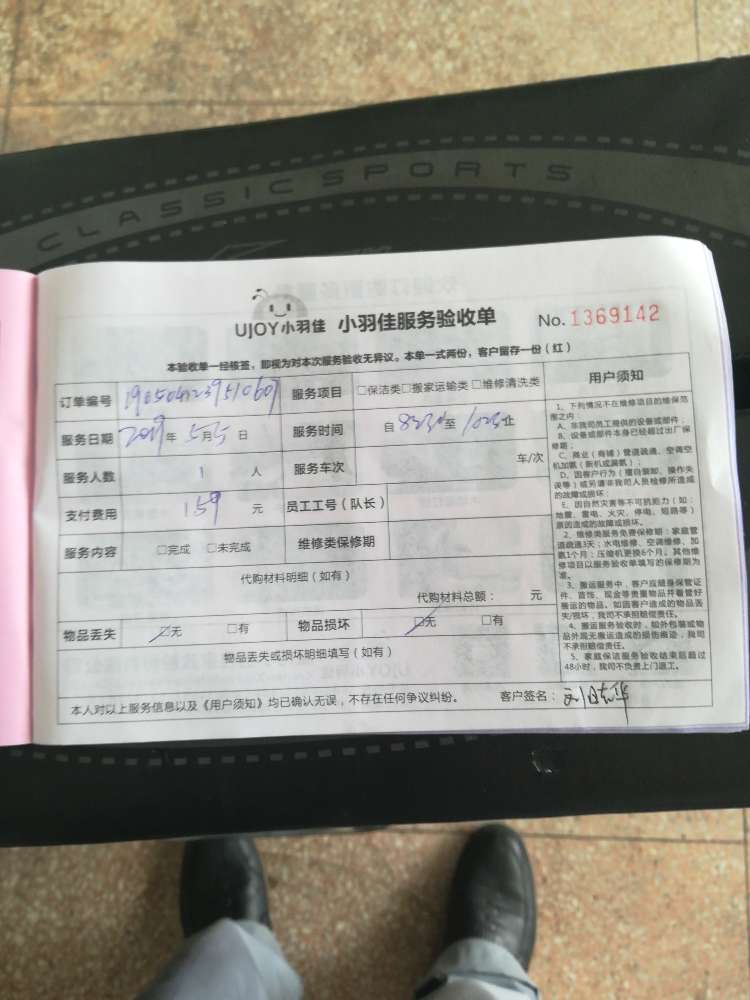 CLASSIC SPORTS
UJOY小羽佳 小羽佳服务验收单 No. 1369142
本验收单一经核签，即视为对本次服务验收无异议。本单一式两份，客户留存一份（红）
订单编号 服务项目 □保洁类□搬家运输类□维修清洗类
服务日期 2019年5月5日 服务时间 自8:30至10:30止
服务人数 1 人 服务车次 车/次
支付费用 159 元 员工工号（队长）
服务内容 □完成 □未完成 维修类保修期
代购材料明细（如有）
代购材料总额： 元
物品丢失 □无 □有 物品损坏 □无 □有
物品丢失或损坏明细填写（如有）
本人对以上服务信息以及《用户须知》均已确认无误，不存在任何争议纠纷。 客户签名：
用户须知
1、下列情况不在维修项目的维保范
围之内：
A、非我司员工提供的设备或部件；
B、设备或部件本身已经超过出厂保
修期；
C、商业（商铺）管道疏通、空调空
机加氟（新机或漏氟）；
D、因客户行为（擅自装卸、操作失
误等）或另请非我司人员检修所造成
的故障或损坏；
E、因自然灾害等不可抗能力（如：
地震、雷电、火灾、停电、短路等）
原因造成的故障或损坏。
2、维修类服务免费保修期：家庭管
道疏通3天；水电维修、空调维修、加
氟1个月；压缩机更换6个月。其他维
修项目以服务验收单填写的保修期为
准。
3、搬运服务中，客户应随身保管证
件、首饰、现金等贵重物品并看管好
搬运的物品。如因客户造成的物品丢
失/损坏，我司不承担赔偿责任。
4、搬运服务验收时，如外包装或物
品外观无搬运造成的损伤痕迹，我司
不承担赔偿责任。
5、家庭保洁服务验收结束后超过
48小时，我司不负责上门返工。